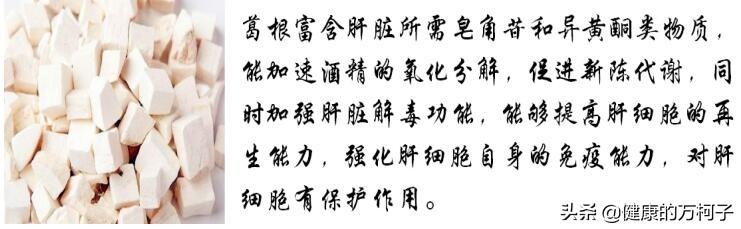 葛根富含肝脏所需皂角苷和异黄酮类物质，
能加速酒精的氧化分解，促进新陈代谢，同
时加强肝脏解毒功能，能够提高肝细胞的再
生能力，强化肝细胞自身的免疫能力，对肝
细胞有保护作用。
头条 @健康的万柯子